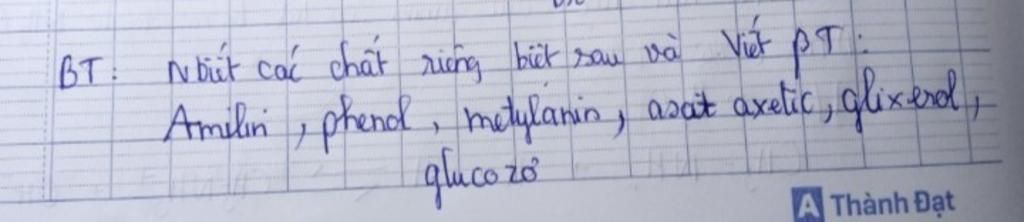 BT: Nbiết các chất riêng biệt sau và Viết PT:
Amilin, phenol, metylanin, axit axetic, glixerol,
glucozơ
A Thành Đạt